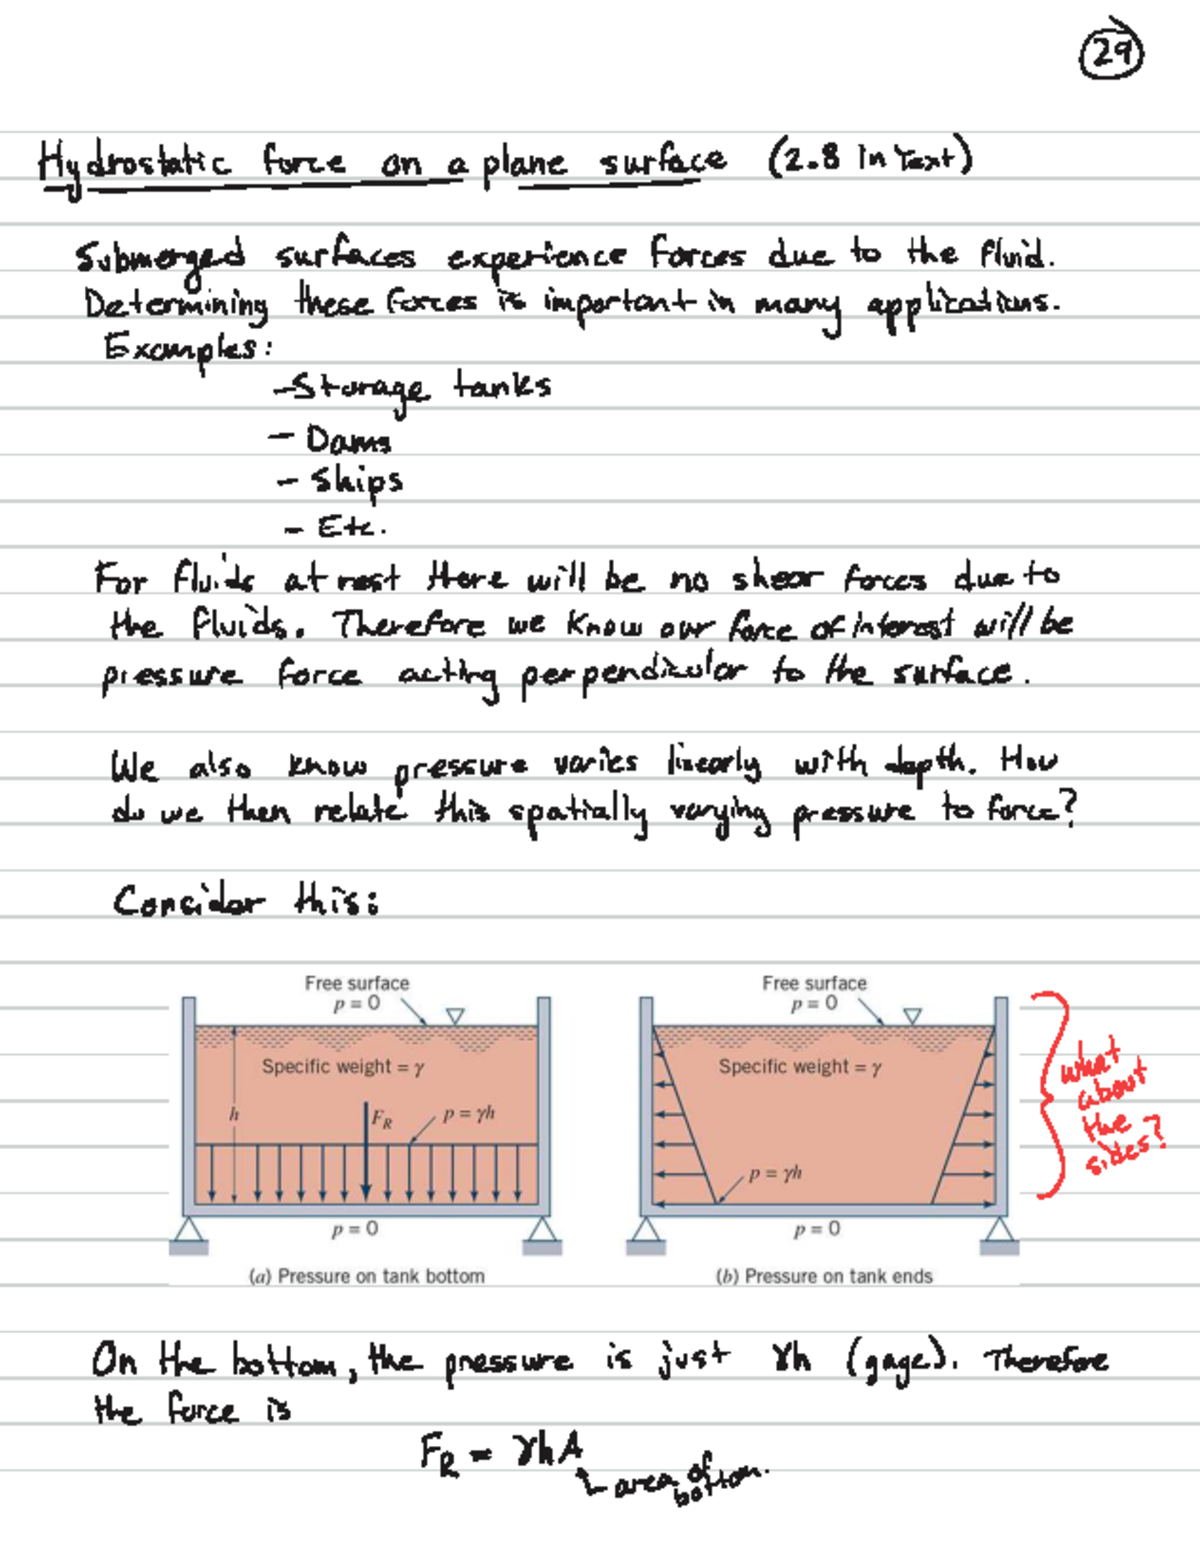 29
Hydrostatic force on a plane surface (2.8 in text)
Submerged surfaces experience forces due to the fluid.
Determining these forces is important in many applications.
Examples:
- Storage tanks
- Dams
- Ships
- Etc.
For fluids at rest there will be no shear forces due to
the fluids. Therefore we know our force of interest will be
pressure force acting perpendicular to the surface.
We also know pressure varies linearly with depth. How
do we then relate this spatially varying pressure to force?
Consider this:
Free surface
p = 0
Specific weight = γ
h
F_R
p = γh
p = 0
(a) Pressure on tank bottom
Free surface
p = 0
Specific weight = γ
p = γh
p = 0
(b) Pressure on tank ends
what
about
the
sides?
On the bottom, the pressure is just γh (gage). Therefore
the force is
F_R = γhA
area of
bottom.